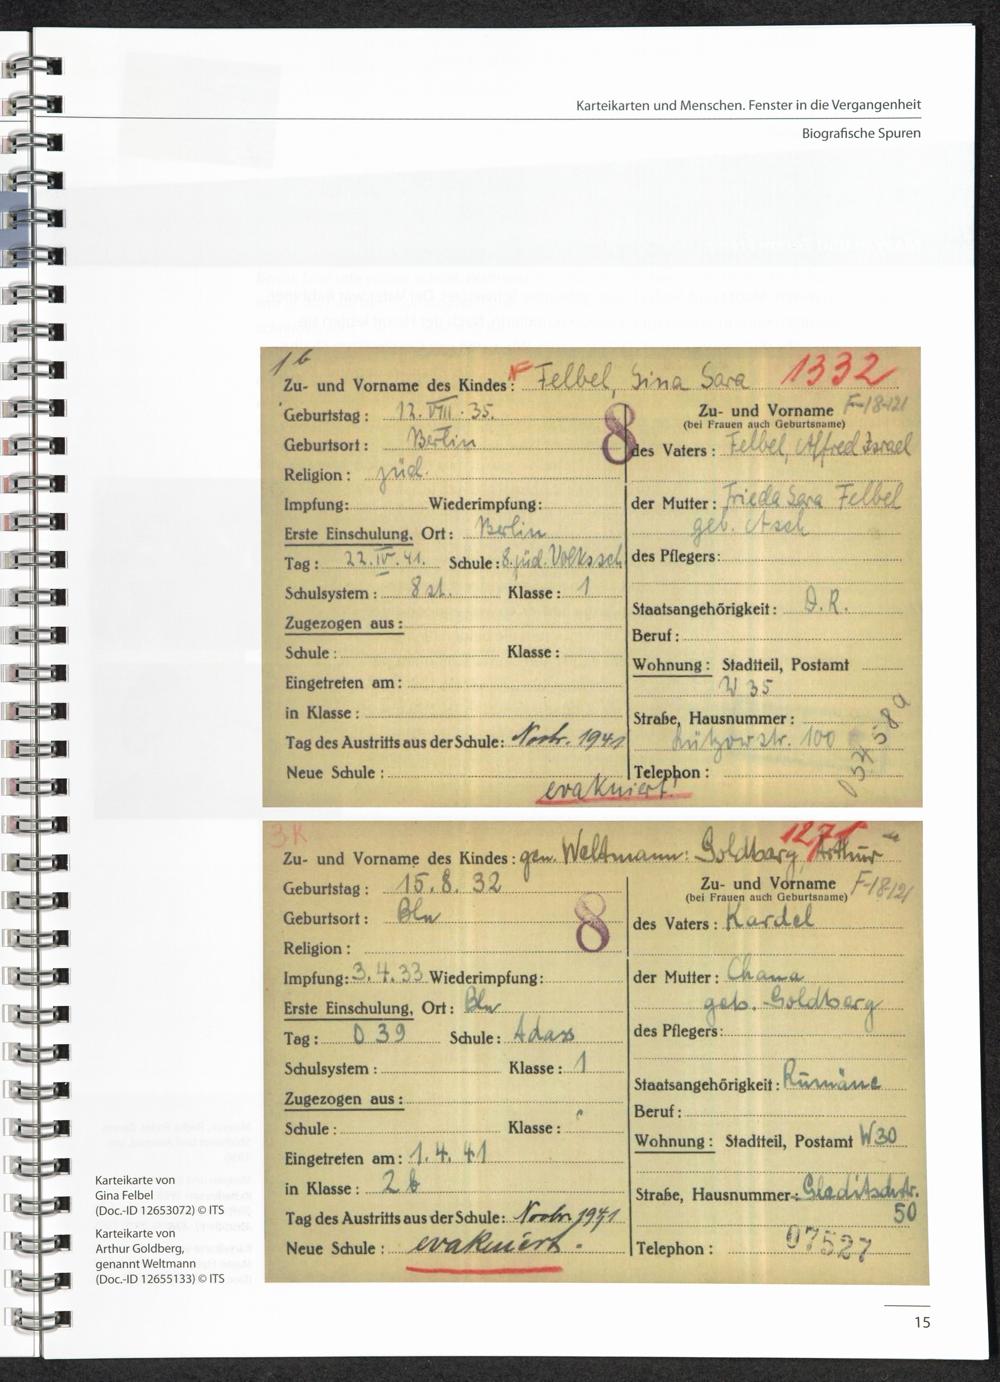 Karteikarten und Menschen. Fenster in die Vergangenheit
Biografische Spuren
1b
Zu- und Vorname des Kindes: Felbel, Gina Sara 1332
Geburtstag: 12. VIII. 35.
Geburtsort: Berlin
Religion: jüd.
Impfung: Wiederimpfung:
Erste Einschulung, Ort: Berlin
Tag: 22. IV. 41. Schule: 8. jüd. Volkssch
Schulsystem: 8 st. Klasse: 1
Zugezogen aus:
Schule: Klasse:
Eingetreten am:
in Klasse:
Tag des Austritts aus der Schule: Novbr. 1941
Neue Schule:
evakuiert!
8
Zu- und Vorname F-18-121
(bei Frauen auch Geburtsname)
des Vaters: Felbel, Alfred Israel
der Mutter: Frieda Sara Felbel
geb. Asch
des Pflegers:
Staatsangehörigkeit: D.R.
Beruf:
Wohnung: Stadtteil, Postamt
W 35
Straße, Hausnummer:
Lützowstr. 100
Telephon:
3K
1271
Zu- und Vorname des Kindes: gen. Weltmann: Goldberg, Arthur
Geburtstag: 15. 8. 32
Geburtsort: Bln
Religion:
Impfung: 3.4.33 Wiederimpfung:
Erste Einschulung, Ort: Bln
Tag: O 39 Schule: Adass
Schulsystem: Klasse: 1
Zugezogen aus:
Schule: Klasse:
Eingetreten am: 1. 4. 41
in Klasse: 2b
Tag des Austritts aus der Schule: Novbr. 1941
Neue Schule: evakuiert.
8
Zu- und Vorname F-18-121
(bei Frauen auch Geburtsname)
des Vaters: Kardel
der Mutter: Chana
geb. Goldberg
des Pflegers:
Staatsangehörigkeit: Rumäne
Beruf:
Wohnung: Stadtteil, Postamt W30
Straße, Hausnummer: Gleditschstr.
50
Telephon: 07527
Karteikarte von
Gina Felbel
(Doc.-ID 12653072) © ITS
Karteikarte von
Arthur Goldberg,
genannt Weltmann
(Doc.-ID 12655133) © ITS
15